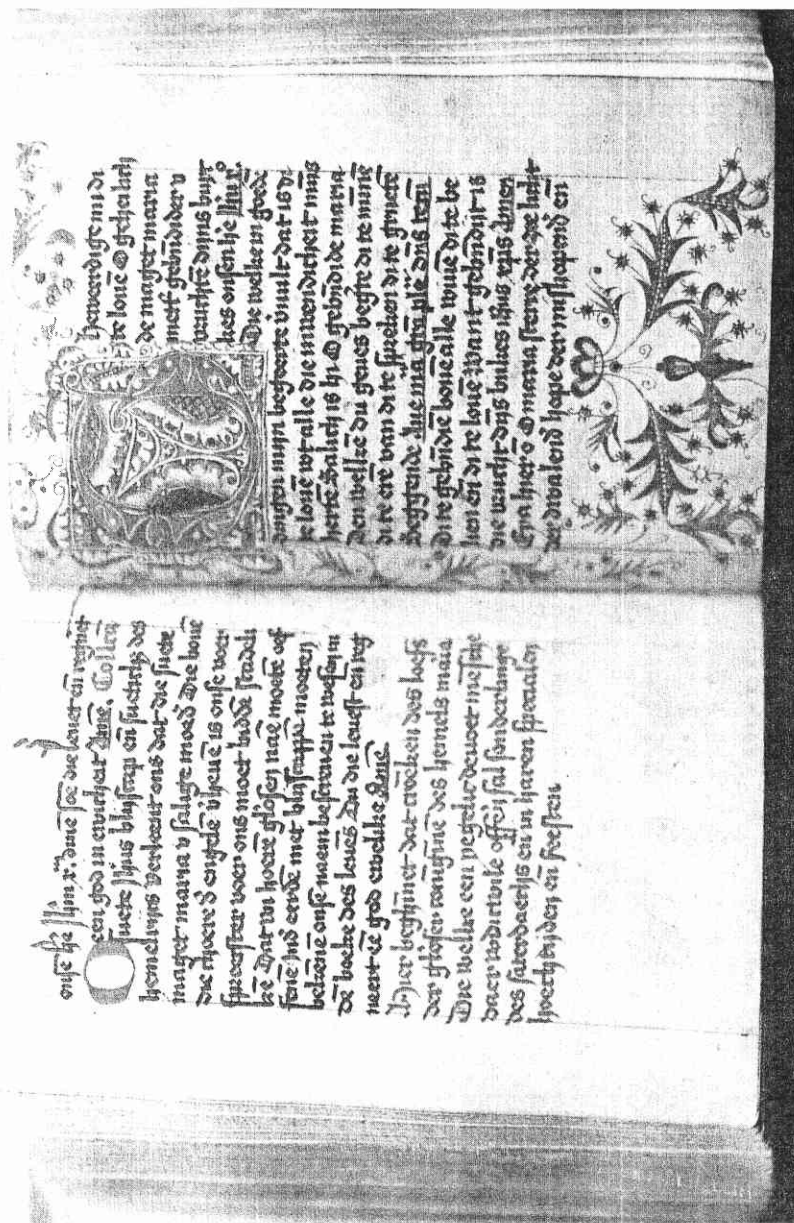 onse he Jhm xm. dme soe die leuet en regniert
een god in ewicheit Ame. Collecta
O suete Jhus blijscap en suetichz des
hemelrijcs verleent ons dat die suete
maget maria v salige moed Die bouē
die choere d engelē vheuē is onse voer
spreecster voer ons moet biddē
kē Dat wi hoerē glosen naē moetē
met blijscappē moeten
bekēnē onsē naem bescreuen te wesen in
dē boeke des leuēs Du die leuest en reg
neert eē god ewelike Amē.
Hier beghinnet dat croeken des loefs
der gloser coniginē des hemels maia
Die welke een yegelic deuoet mesche
daer to dirwile offerē sal sonderlinge
des saterdaechs en in haren specialen
hoechtijden en feesten
hewerdige mi di
te louē O gehalich
de maget maria
met gebndider v
vruchtē dijns buyc
kes onsen he Jhm.
Die welke in guedē
dingen mijn begeerte vuult dat is di
te louē wt alle die inwendicheit mijns
hertē Salich is hi O gebndide maria
Den welkē du geues begerte di te mine
di te erē van di te sprecken di te gruetē
Seggende Aue ma gra ple dns tecū
Di te gebndiē bouē alle wiuē di te be
ken en di te louē Want gebndijt is
die vrucht dijs bukes ihus xps Amen
Eya hier o O maria sterne der zee heil
der dwalend hope der misshopend en